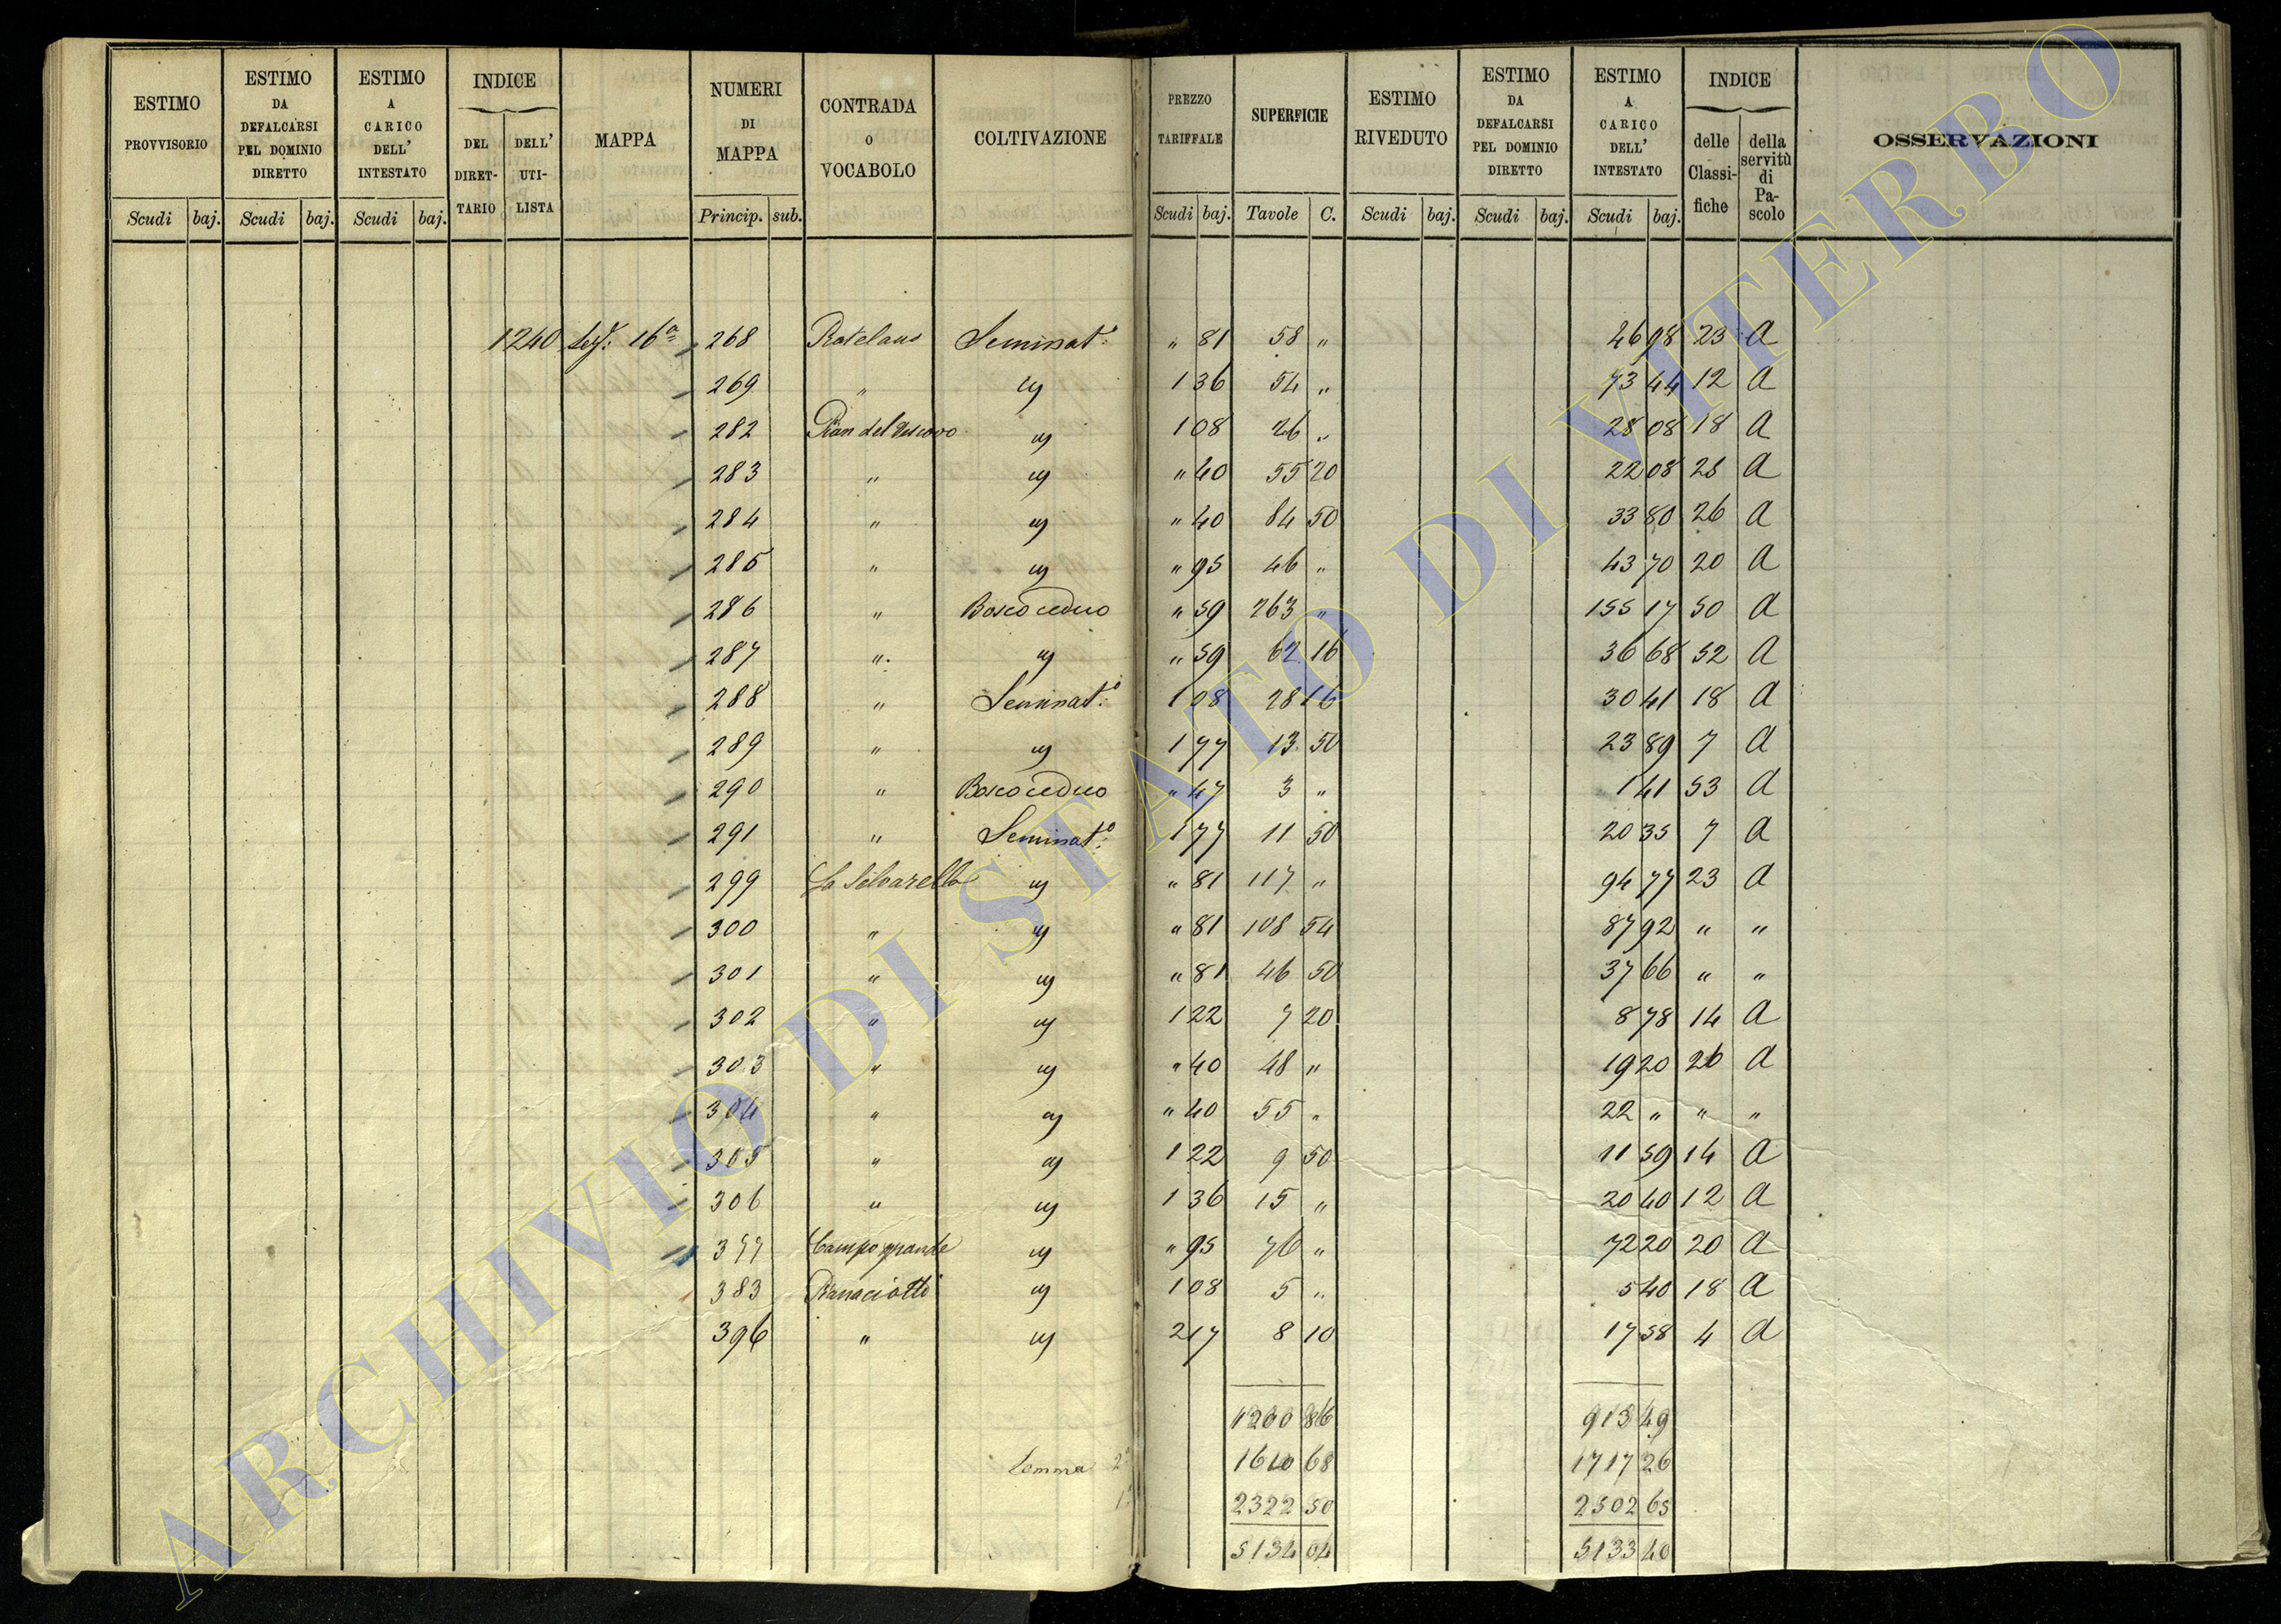 ESTIMO PROVVISORIO | ESTIMO DA DEFALCARSI PEL DOMINIO DIRETTO | ESTIMO A CARICO DELL' INTESTATO | INDICE DEL DIRETTARIO | DELL' UTILISTA | MAPPA | NUMERI DI MAPPA | CONTRADA O VOCABOLO | COLTIVAZIONE | PREZZO TARIFFALE | SUPERFICIE | ESTIMO RIVEDUTO | ESTIMO DA DEFALCARSI PEL DOMINIO DIRETTO | ESTIMO A CARICO DELL' INTESTATO | INDICE delle Classifiche | della servitù di Pascolo | OSSERVAZIONI
Scudi | baj. | Scudi | baj. | Scudi | baj. | Princip. | sub. | Scudi | baj. | Tavole | C. | Scudi | baj. | Scudi | baj. | Scudi | baj.
1240 16ª 268 Seminat.º " 81 58 " 46 98 23 A
269 " 1 36 54 " 73 44 12 A
282 Pian del Vescovo 1 08 26 " 28 08 18 A
283 " " 40 55 20 22 08 26 A
284 " " 40 84 50 33 80 26 A
285 " " 95 46 " 43 70 20 A
286 " Bosco ceduo " 59 263 " 155 17 50 A
287 " " 59 62 16 36 68 52 A
288 " Seminat.º 1 08 28 16 30 41 18 A
289 " 1 77 13 50 23 89 7 A
290 " Bosco ceduo " 47 3 " 1 41 53 A
291 " Seminat.º 1 77 11 50 20 35 7 A
299 La Selvarella " 81 117 " 94 77 23 A
300 " " 81 108 54 87 92 " "
301 " " 81 46 50 37 66 " "
302 " 1 22 7 20 8 78 14 A
303 " " 40 48 " 19 20 26 A
304 " " 40 55 " 22 " " "
305 " 1 22 9 50 11 59 14 A
306 " 1 36 15 " 20 40 12 A
377 Campo grande " 95 76 " 72 20 20 A
383 1 08 5 " 5 40 18 A
396 " 2 17 8 10 17 58 4 A
1200 86 913 49
Somma 2ª 1610 68 1717 26
1ª 2322 50 2502 65
5134 04 5133 40
ARCHIVIO DI STATO DI VITERBO